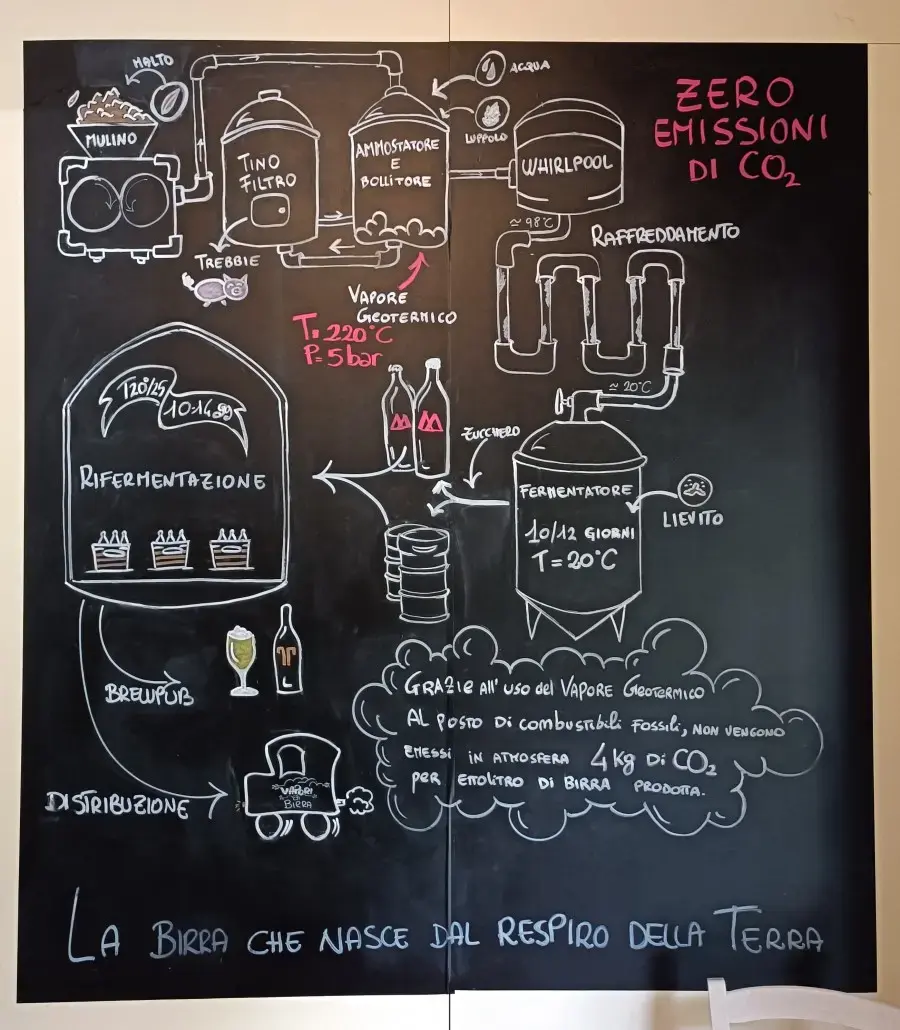 MALTO
MULINO
TINO
FILTRO
TREBBIE
AMMOSTATORE
E
BOLLITORE
ACQUA
LUPPOLO
WHIRLPOOL
ZERO
EMISSIONI
DI CO₂
≃ 98°C
RAFFREDDAMENTO
VAPORE
GEOTERMICO
T= 220°C
P= 5 bar
≃ 20°C
T20°/25
10-14 gg
RIFERMENTAZIONE
ZUCCHERO
FERMENTATORE
10/12 GIORNI
T = 20°C
LIEVITO
BREWPUB
DISTRIBUZIONE
VAPORI
DI
BIRRA
GRAZIE All' USO del VAPORE GEOTERMICO
AL POSTO DI COMBUSTIBILI FOSSILI, NON VENGONO
EMESSI IN ATMOSFERA 4 Kg DI CO₂
PER ETTOLITRO DI BIRRA PRODOTTA.
LA BIRRA CHE NASCE DAL RESPIRO DELLA TERRA